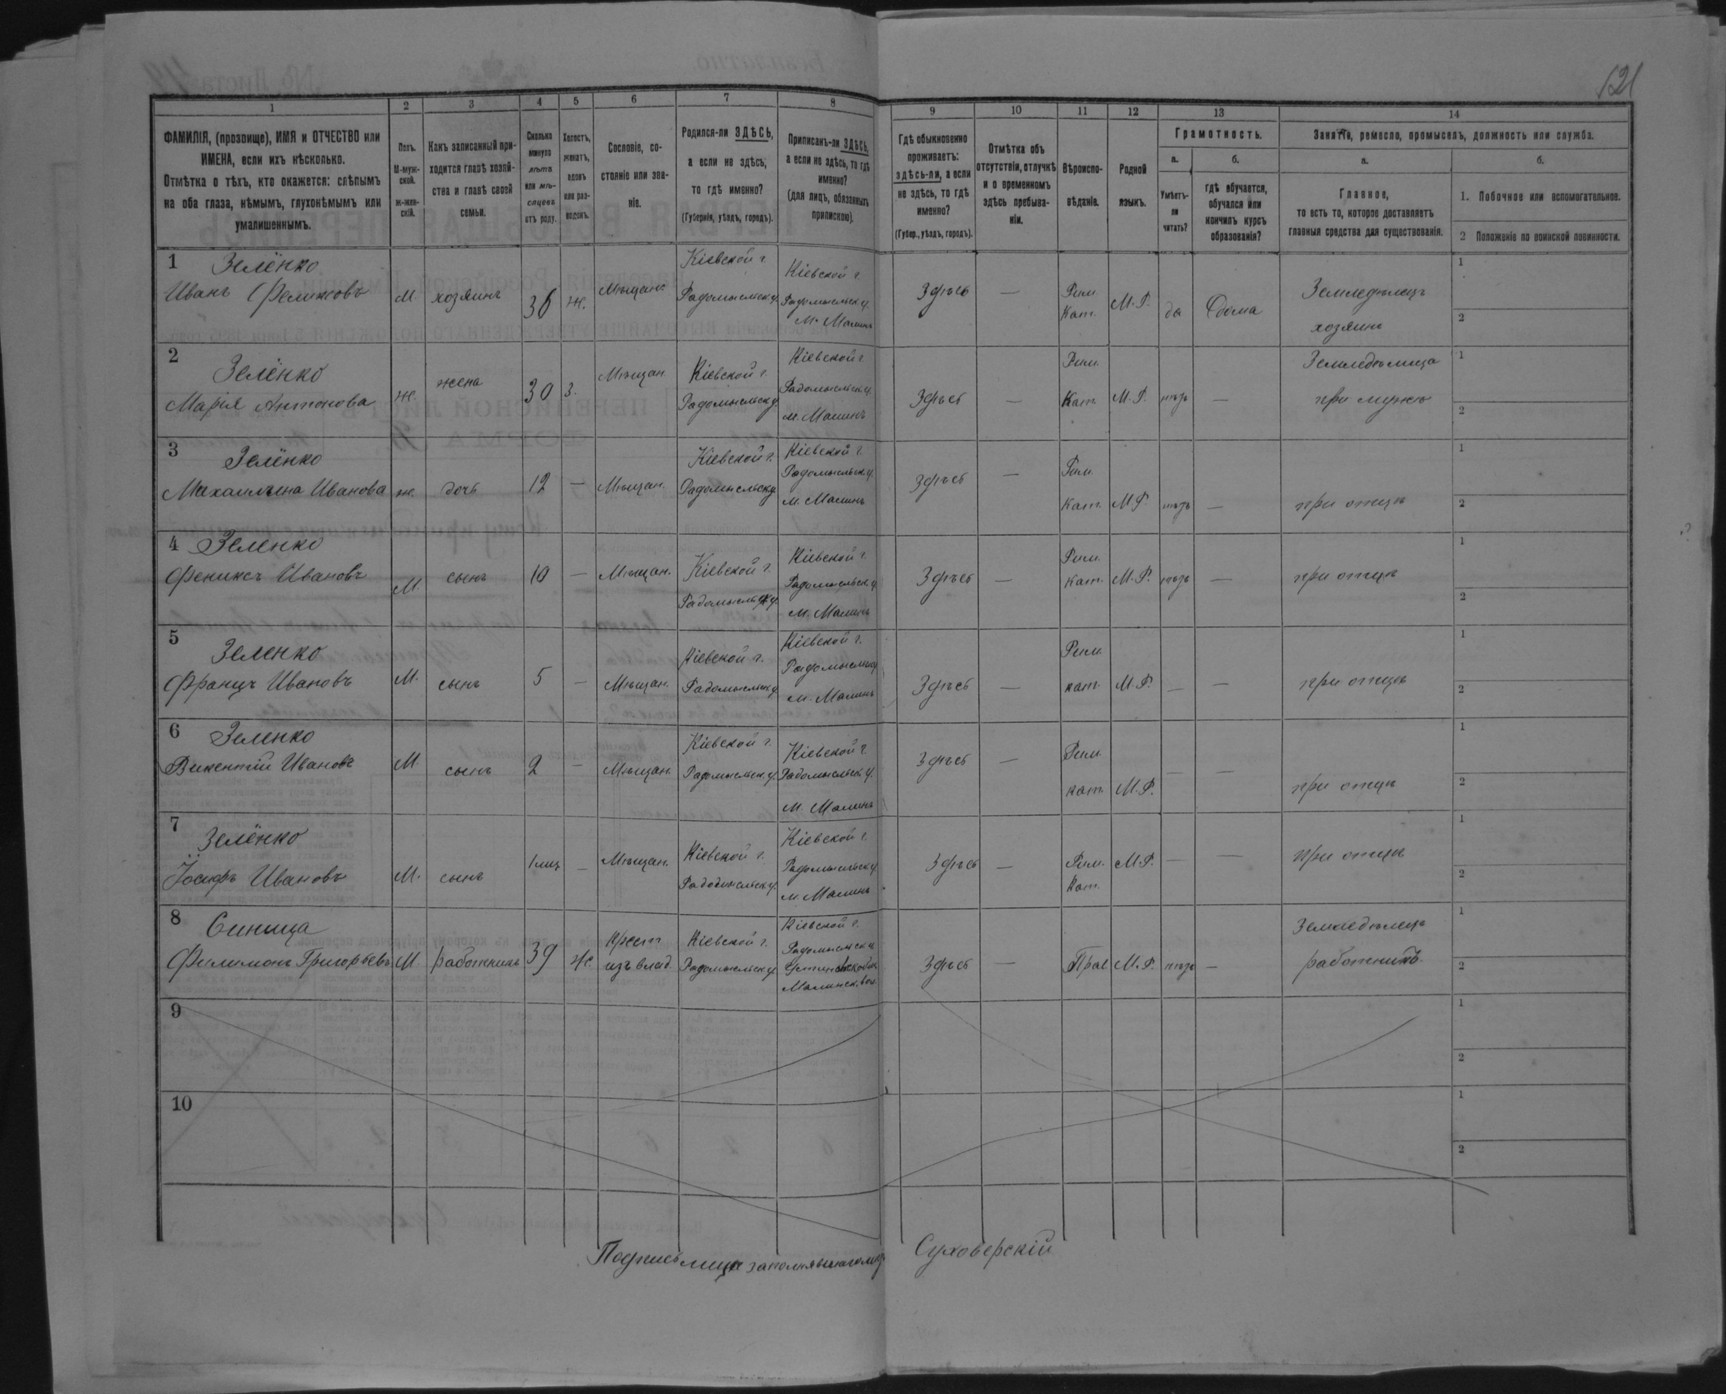 121
1 2 3 4 5 6 7 8 9 10 11 12 13 14
ФАМИЛІЯ, (прозвище), ИМЯ и ОТЧЕСТВО или
ИМЕНА, если ихъ нѣсколько.
Отмѣтка о тѣхъ, кто окажется: слѣпымъ
на оба глаза, нѣмымъ, глухонѣмымъ или
умалишеннымъ.
Полъ.
М-муж-
ской.
ж-жен-
скій.
Какъ записанный при-
ходится главѣ хозяй-
ства и главѣ своей
семьи.
Сколько
минуло
лѣтъ
или мѣ-
сяцевъ
отъ роду.
Холостъ,
женатъ,
вдовъ
или раз-
веденъ.
Сословіе, со-
стояніе или зва-
ніе.
Родился-ли ЗДѢСЬ,
а если не здѣсь,
то гдѣ именно?
(Губернія, уѣздъ, городъ).
Приписанъ-ли ЗДѢСЬ,
а если не здѣсь, то гдѣ
именно?
(для лицъ, обязанныхъ
припискою).
Гдѣ обыкновенно
проживаетъ:
здѣсь-ли, а если
не здѣсь, то гдѣ
именно?
(Губер., уѣздъ, городъ).
Отмѣтка объ
отсутствіи, отлучкѣ
и о временномъ
здѣсь пребыва-
ніи.
Вѣроиспо-
вѣданіе.
Родной
языкъ.
Грамотность.
а.
Умѣетъ-
ли
читать?
б.
гдѣ обучается,
обучался или
кончилъ курсъ
образованія?
Занятіе, ремесло, промыселъ, должность или служба.
а.
Главное,
то есть то, которое доставляетъ
главныя средства для существованія.
б.
1. Побочное или вспомогательное.
2 Положеніе по воинской повинности.
1 Зелёнко
Иванъ Феликсовъ М хозяинъ 36 ж. Мѣщан. Кіевской г. Радомысльск у. Кіевской г. Радомысльск у. м. Малинъ Здѣсь — Рим. Кат. М.Р. да Дома Земледѣлецъ хозяинъ 1 2
2 Зелёнко
Марія Антонова ж. жена 30 з. Мѣщан. Кіевской г. Радомысльск у Кіевской г. Радомысльск у. м. Малинъ Здѣсь — Рим. Кат. М.Р. нѣтъ — Земледѣлица при мужѣ 1 2
3 Зелёнко
Михалина Иванова ж. дочь 12 — Мѣщан. Кіевской г. Радомысльск у Кіевской г. Радомысльск у. м. Малинъ Здѣсь — Рим. Кат. М.Р. нѣтъ — при отцѣ 1 2
4 Зеленко
Феликсъ Ивановъ М сынъ 10 — Мѣщан. Кіевской г. Радомысльск у. Кіевской г. Радомысльск у. м. Малинъ Здѣсь — Рим. Кат. М.Р. нѣтъ — при отцѣ 1 2
5 Зеленко
Францъ Ивановъ М. сынъ 5 — Мѣщан. Кіевской г. Радомысльск у. Кіевской г. Радомысльск у. м. Малинъ Здѣсь — Рим. кат. М.Р. — — при отцѣ 1 2
6 Зеленко
Викентій Ивановъ М сынъ 2 — Мѣщан. Кіевской г. Радомысльск у. Кіевской г. Радомысльск у. м. Малинъ Здѣсь — Рим. кат. М.Р. — — при отцѣ 1 2
7 Зелёнко
Іосифъ Ивановъ М. сынъ 1 мѣц — Мѣщан. Кіевской г. Радомысльск у. Кіевской г. Радомысльск у. м. Малинъ Здѣсь — Рим. Кат. М.Р. — — При отцѣ 1 2
8 Синица
Филимонъ Григорьевъ М работникъ 39 ж. Крест. изъ влад. Кіевской г. Радомысльск у. Кіевской г. Радомысльск у Малинск. вол. Здѣсь — Прав М.Р. нѣтъ — Земледѣлецъ работникъ. 1 2
9 1 2
10 1 2
Подпись лица заполнявшаго листъ Суховерскій